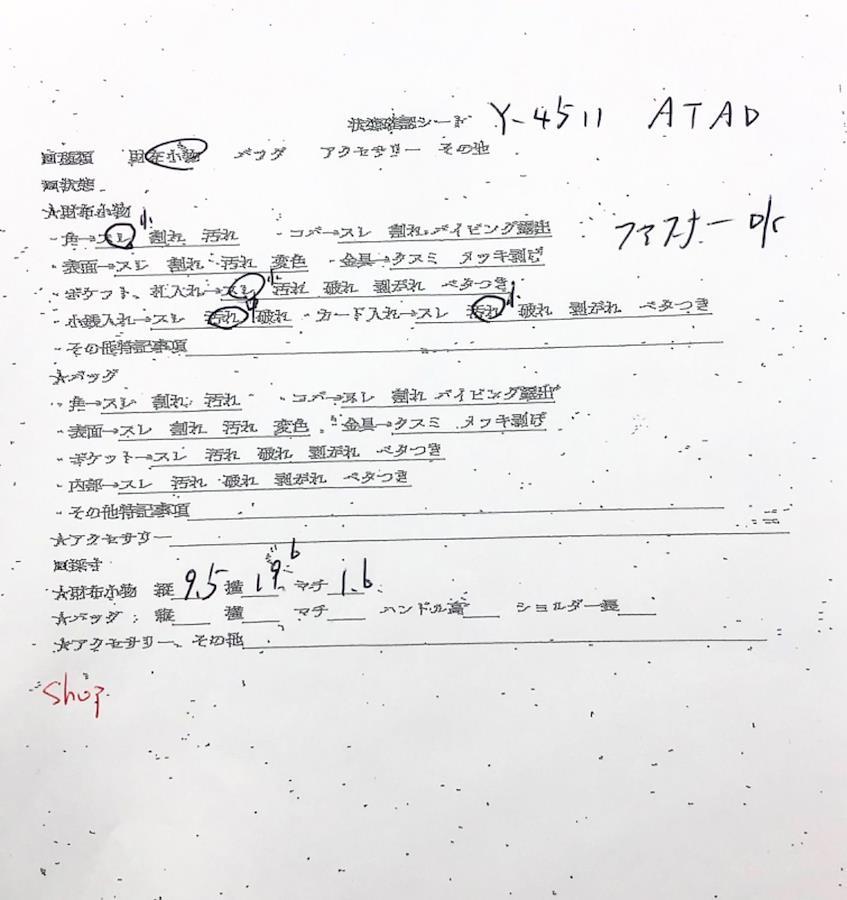 状態確認シート Y-4511 ATAD
□種類 財布小物 バッグ アクセサリー その他
□状態
★財布小物
・角→スレ 割れ 汚れ ・コバ→スレ 割れ パイピング露出 ファスナー O/C
・表面→スレ 割れ 汚れ 変色 ・金具→クスミ メッキ剥げ
・ポケット、札入れ→スレ 汚れ 破れ 剥がれ ベタつき
・小銭入れ→スレ 汚れ 破れ ・カード入れ→スレ 汚れ 破れ 剥がれ ベタつき
・その他特記事項
★バッグ
・角→スレ 割れ 汚れ ・コバ→スレ 割れ パイピング露出
・表面→スレ 割れ 汚れ 変色 ・金具→クスミ メッキ剥げ
・ポケット→スレ 汚れ 破れ 剥がれ ベタつき
・内部→スレ 汚れ 破れ 剥がれ ベタつき
・その他特記事項
★アクセサリー
□採寸
★財布小物 縦 9.5 横 19 マチ 1.6
★バッグ 縦 横 マチ ハンドル高 ショルダー長
★アクセサリー、その他
Shop